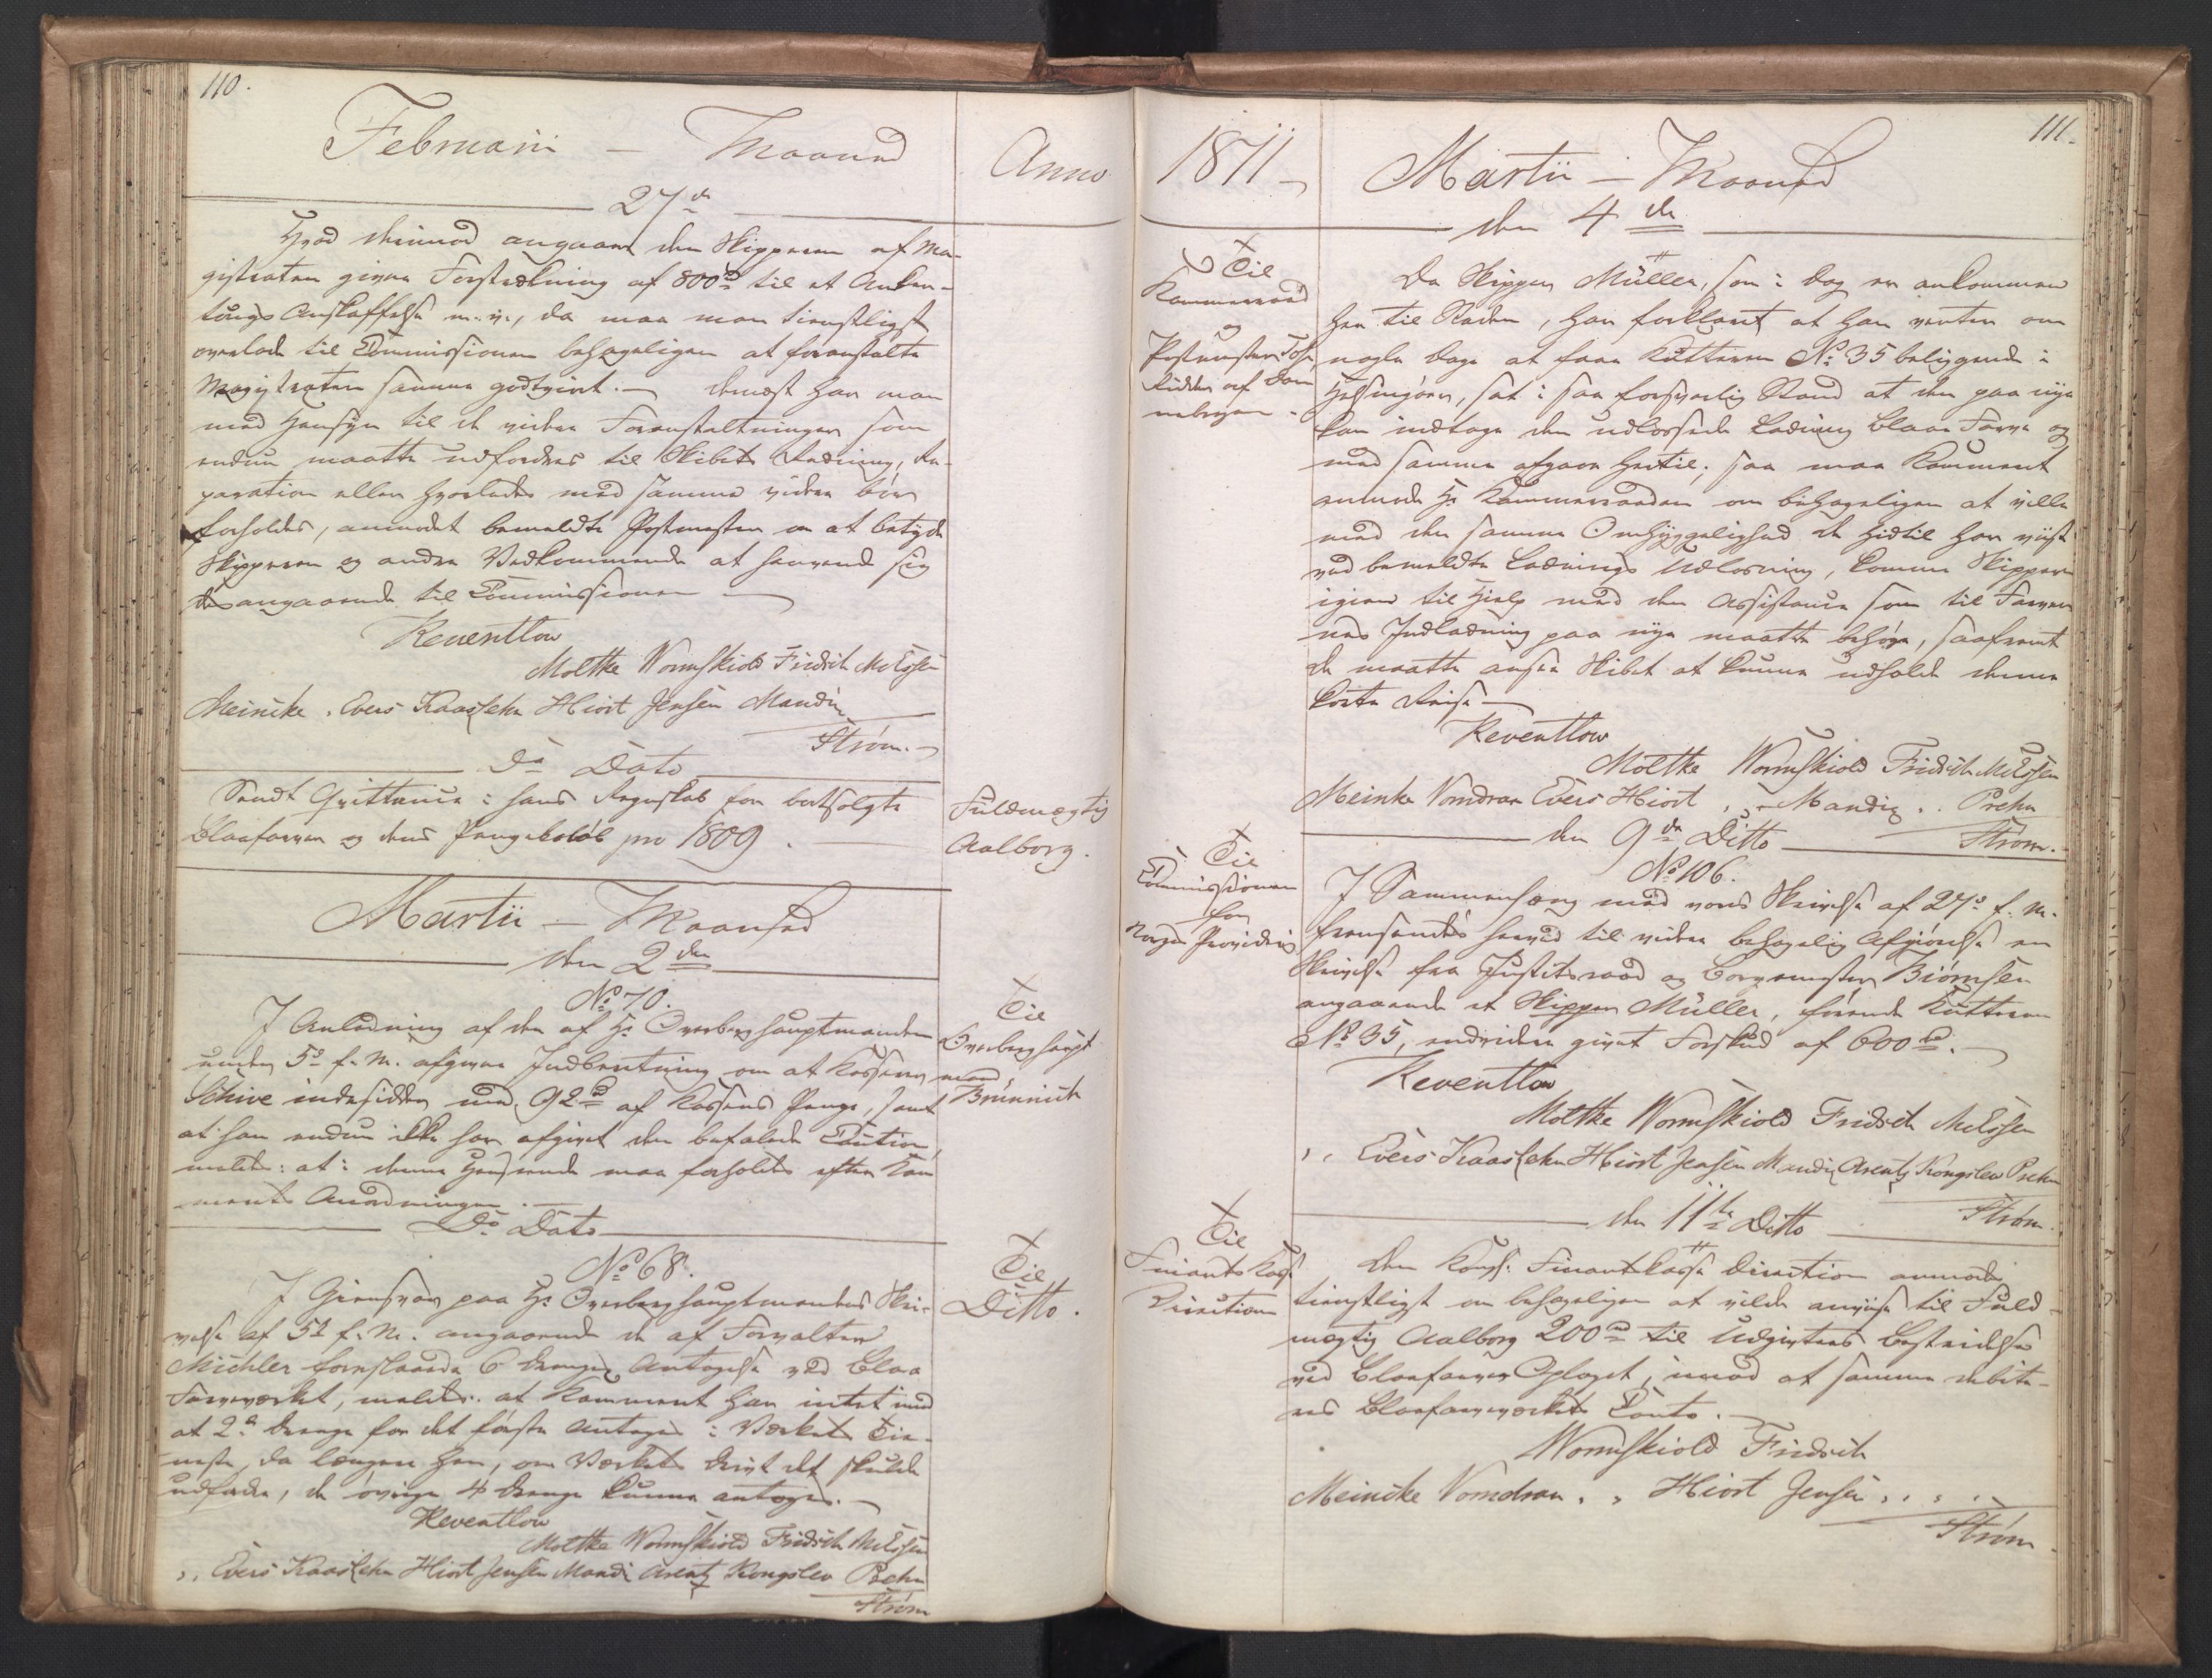 110.
Februarii – Maaned
Anno
27de
Hvad derimod angaaer den Skipperen af Ma-
gistraten givne Forstrækning af 800rd til et Anker-
tougs Anskaffelse m. v., da maa man tienstligst
overlade til Commissionen behageligen at foranstalte
Magistraten samme godtgiort. – dernæst har man
med Hensyn til de videre Foranstaltninger som
endnu maatte udfordres til Skibets Ladning, Re-
paration eller hvorledes med samme videre bør
forholdes, anmodet bemeldte Postmester om at betyde
Skipperen og andre Vedkommende at henvende sig
desangaaende til Commissionen
Reventlow
Moltke Wormskiold Fridrich
Meinike . Evers Kaas Lehn Hiort Jensen Mandix
Strøm.
Do Dato
Sendt Qvittance i hans Regnskab for bortsolgte
Blaafarver og dens Pengebeløb pro 1809.
Fuldmægtig
Aalborg.
Martii – Maaned
den 2den
No 70.
I Anledning af den af Hr Overberghauptmanden
under 5te f. M. afgivne Indberetning om at Kasserer
Schive indesidder med 92rd af Kassens Penge, samt
at han endnu ikke har afgivet den befalede Caution,
meldes: at i denne Henseende maa forholdes efter Kam
merets Anordninger.
Til
Overberghaupt
mand
Brünnich
Do Dato
No 68.
I Giensvar paa Hr Overberghauptmandens Skri-
velse af 5te f. M. angaaende de af Forvalter
Michler foreslaaede 6 Drenges Antagelse ved Blaa
Farveværket, meldes: at Kammeret har intet imod
at 2de Drenge for det første antages i Værkets Tie-
neste, da længere hen, om Værkets Drivt det skulde
udfordre, de øvrige 4 Drenge kunne antages.
Reventlow
Moltke Wormskiold Fridrich
,, Evers Kaas Lehn Hiort Jensen Mandix Arentz Kongslew Prehn
Strøm
Til
Ditto.
111.
1811
Martii – Maaned
den 4de
Til
Kammerraad
og
Postmester
Ridder af Dan
nebrogen.
Da Skipper Müller, som i Dag er ankommen
her til Staden, har forklaret at han venter om
nogle Dage at faae Kutteren No 35 beliggende i
Helsingøer, sat i saa forsvarlig Stand at den paa nye
kan indtage den udlossede Ladning blaae Farve og
med samme afgaae hertil; saa maa Kammeret
anmode Hr Kammerraaden om behageligen at ville
med den samme Omhyggelighed De hidtil har viist
ved bemeldte Ladnings Udlosning, komme Skipperen
igien til Hielp med den Assistance som til Farver
nes Indladning paa nye maatte behøves, saafremt
De maatte ansee Skibet at kunne udholde denne
korte Reise
Reventlow
Moltke Wormskiold Fridrich
Meinke Vomdran Evers Hiort , , – Mandix . . Prehn
Strøm.
den 9de Ditto
No 106.
Til
Commissionen
for
Norges Providering
I Sammenhæng med vores Skrivelse af 27de f. M.
fremsendes herved til videre behagelig Afgiørelse en
Skrivelse fra Justitsraad og Borgemester Biørnsen
angaaende et Skipper Müller, førende Kutteren
No 35, endvidere givet Forskud af 600rd.
Reventlow
Moltke Wormskiold Fridrich
, , Evers Kaas Lehn Hiort Jensen Mandix Arentz Kongslew Prehn
Strøm.
den 11te Ditto
Til
Finants Kasse
Direction
Den Kongl: Finantskasse Direction anmodes
tienstligst om behageligen at vilde anviise til Fuld-
mægtig Aalborg 200rd til Udgivters Bestridelse
ved Blaafarve Oplaget, imod at samme debite-
res Blaafarveværkets Conto.
Wormskiold Fridrich
Meincke Vomdran . , Hiort Jensen , . , . .
Strøm